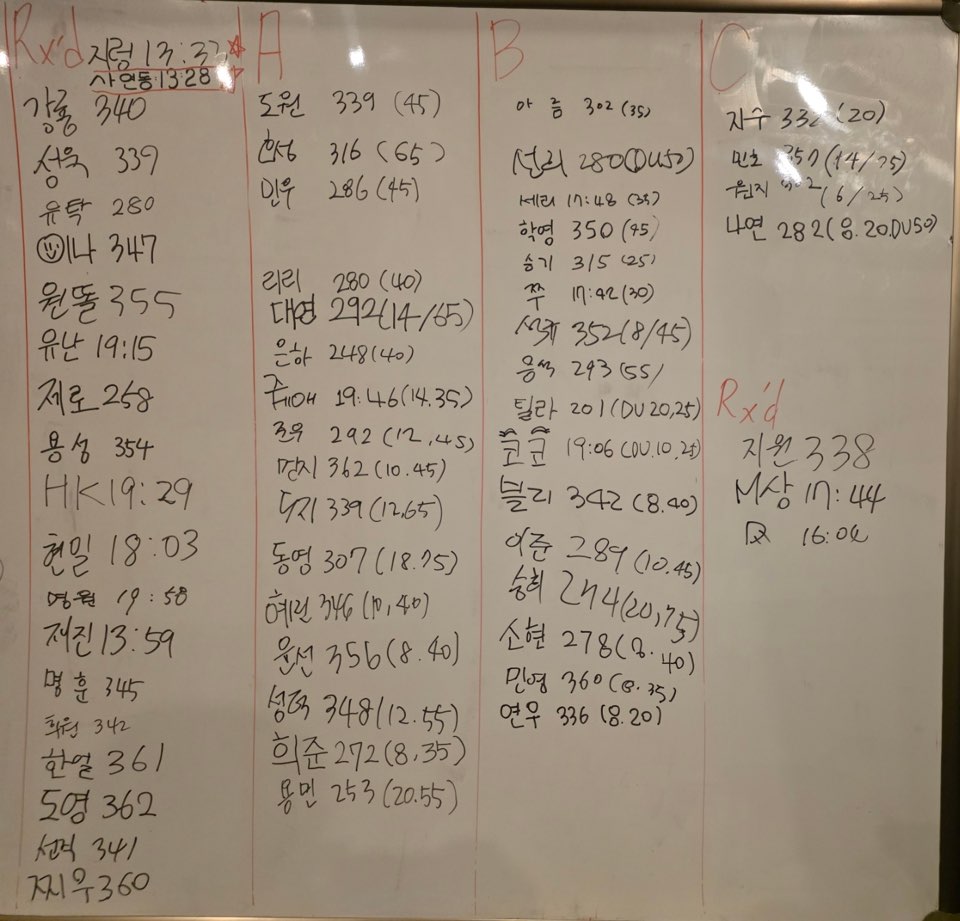 Rx'd
지렁 13:33
사연동 13:28
강룡 340
성욱 339
유탁 280
이나 347
원똘 355
유난 19:15
제로 268
용성 354
HK 19:29
현밀 18:03
명원 19:58
재진 13:59
명훈 345
희원 342
한얼 361
도영 362
선직 341
찌우 360
A
도원 339 (45)
한성 316 (65)
민우 286 (45)
리리 280 (40)
대영 292 (14/65)
은하 248 (40)
쥬애 19:46 (14.35)
조우 292 (12,45)
민지 362 (10.45)
두지 339 (12,65)
동영 307 (18.75)
혜린 346 (10,40)
윤선 356 (8.40)
성덕 348 (12.55)
희준 272 (8,35)
용민 253 (20.55)
B
아름 302 (35)
선리 280 (DU50)
세리 17:48 (35)
학영 350 (45)
승기 315 (25)
쭈 17:42 (30)
352 (8/45)
웅석 293 (55)
틸라 201 (DU20,25)
코코 19:06 (DU.10,25)
블리 342 (8.40)
이준 289 (10.45)
승희 274 (20,75)
소현 278 (8.40)
민영 360 (8.35)
연우 336 (8.20)
C
지수 332 (20)
민호 350 (14/75)
원지 302 (6/25)
나연 282 (8.20,DU50)
Rx'd
지원 338
M상 17:44
16:04